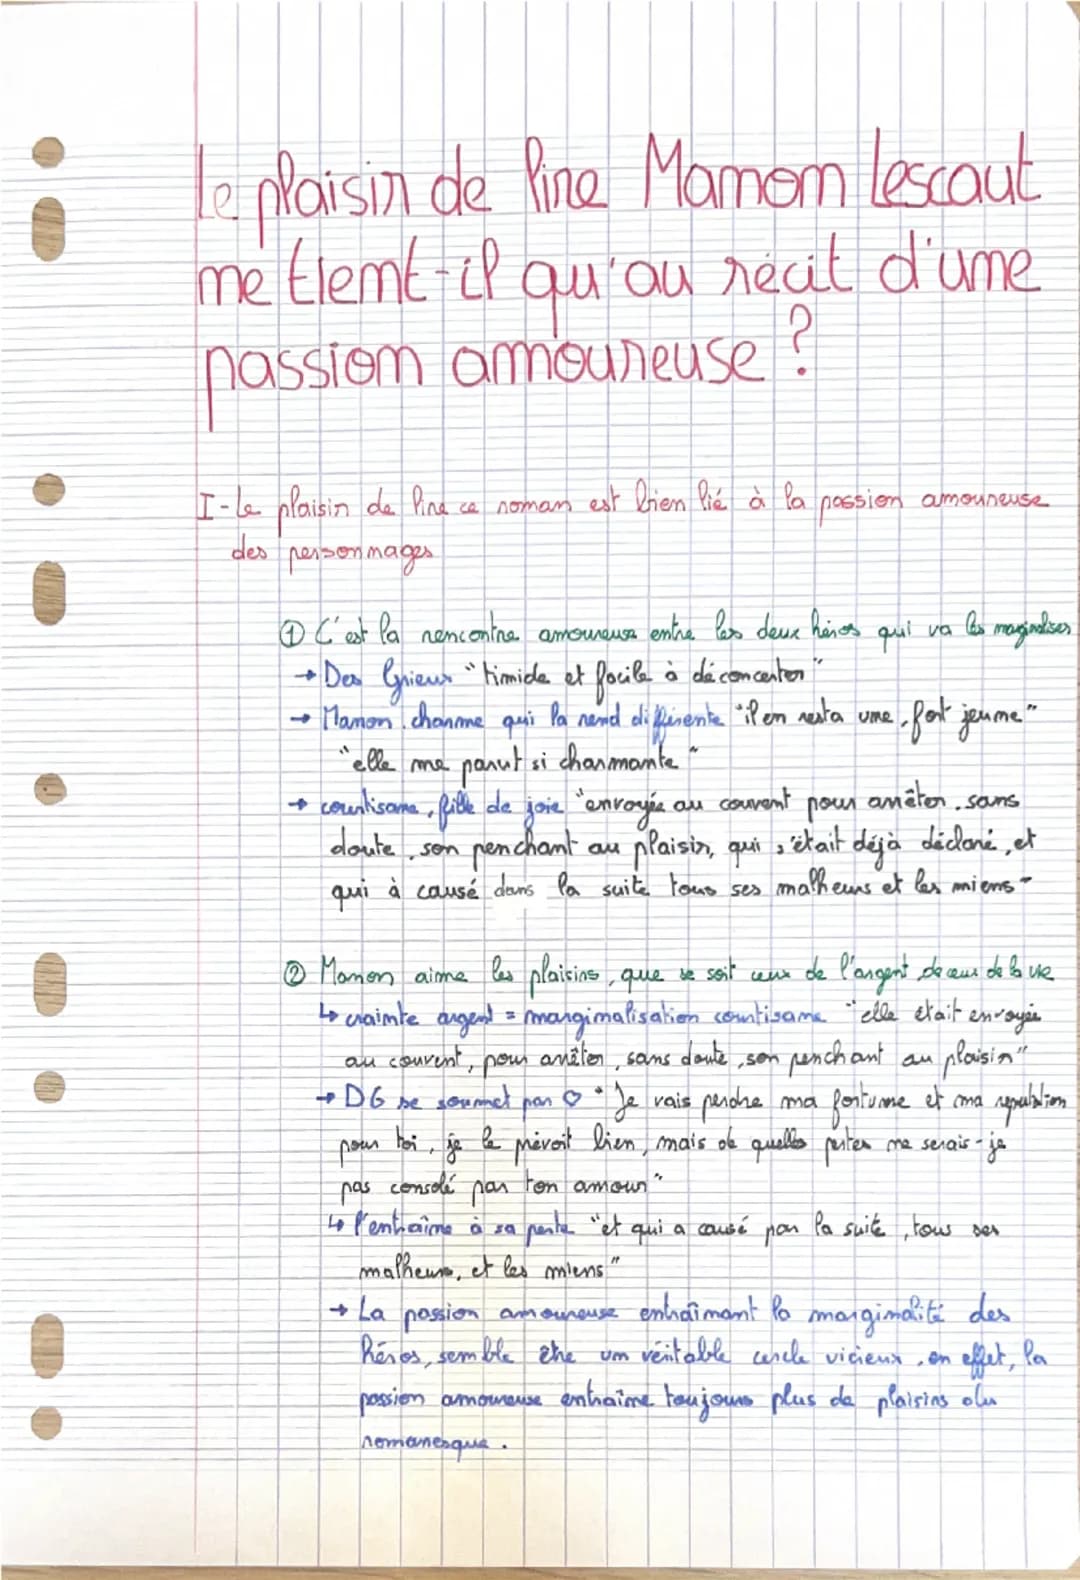 Le plaisir de lire Manon Lescaut
ne tient-il qu'au récit d'une
passion amoureuse ?
I - Le plaisir de lire ce roman est bien lié à la passion amoureuse
des personnages
① C'est la rencontre amoureuse entre les deux héros qui va les marginaliser
→ Des Grieux "timide et facile à déconcerter"
→ Manon, charme qui la rend différente "il en resta une, fort jeune"
"elle me parut si charmante"
→ courtisane, fille de joie "envoyée au couvent pour arrêter, sans
doute, son penchant au plaisir, qui s'était déjà déclaré, et
qui à causé dans la suite tous ses malheurs et les miens"
② Manon aime les plaisirs, que se soit ceux de l'argent, de ceux de la vie
↳ crainte argent = marginalisation courtisane "elle était envoyée
au couvent, pour arrêter, sans doute, son penchant au plaisir"
→ DG se soumet par ♡ "Je vais perdre ma fortune et ma reputation
pour toi, je le prévoit bien, mais de quelles pertes ne serais-je
pas consolé par ton amour"
↳ l'entraîne à sa perte "et qui a causé par la suite, tous ses
malheurs, et les miens"
→ La passion amoureuse entraînant la marginalité des
héros, semble être un véritable cercle vicieux, en effet, la
passion amoureuse entraîne toujours plus de plaisirs du
romanesque.